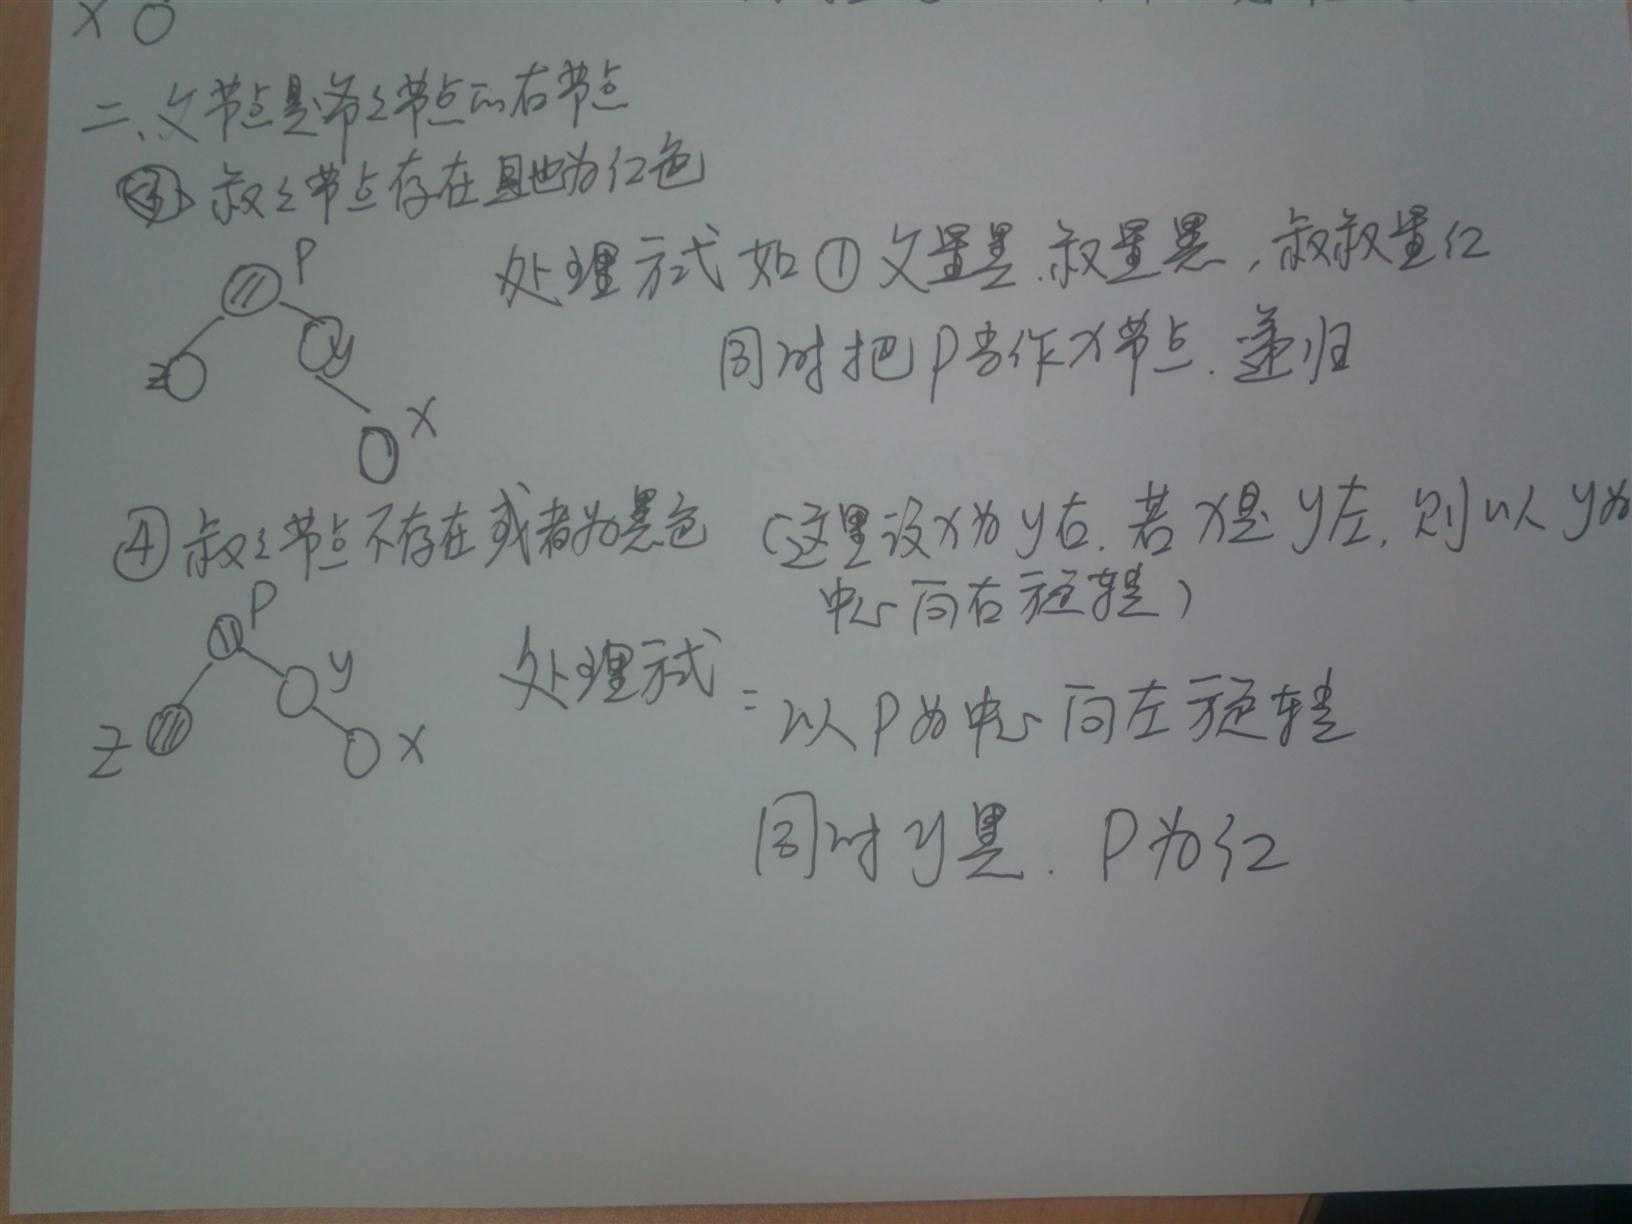 x
二、父节点是爷爷节点的右节点
③ 叔叔节点存在且也为红色
P
处理方式如①父置黑.叔置黑,叔叔置红
z
y
同时把P当作x节点.递归
x
④叔叔节点不存在或者为黑色 (这里设x为y右.若x是y左,则以y为
中心向右旋转)
P
y
处理方式:
z
x
以P为中心向左旋转
同时y黑.P为红